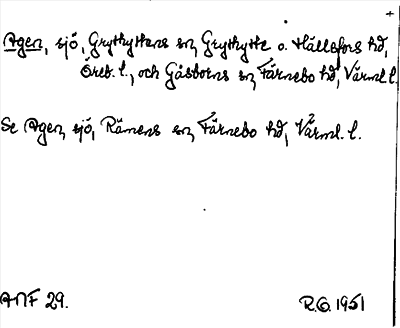 Agen, sjö, Grythyttens sn, Grythytte o. Hällefors hd,
Öreb. l., och Gåsborns sn, Färnebo hd, Värml. l.
Se Agen, sjö, Rämens sn, Färnebo hd, Värml. l.
ANF 29. R.G. 1951